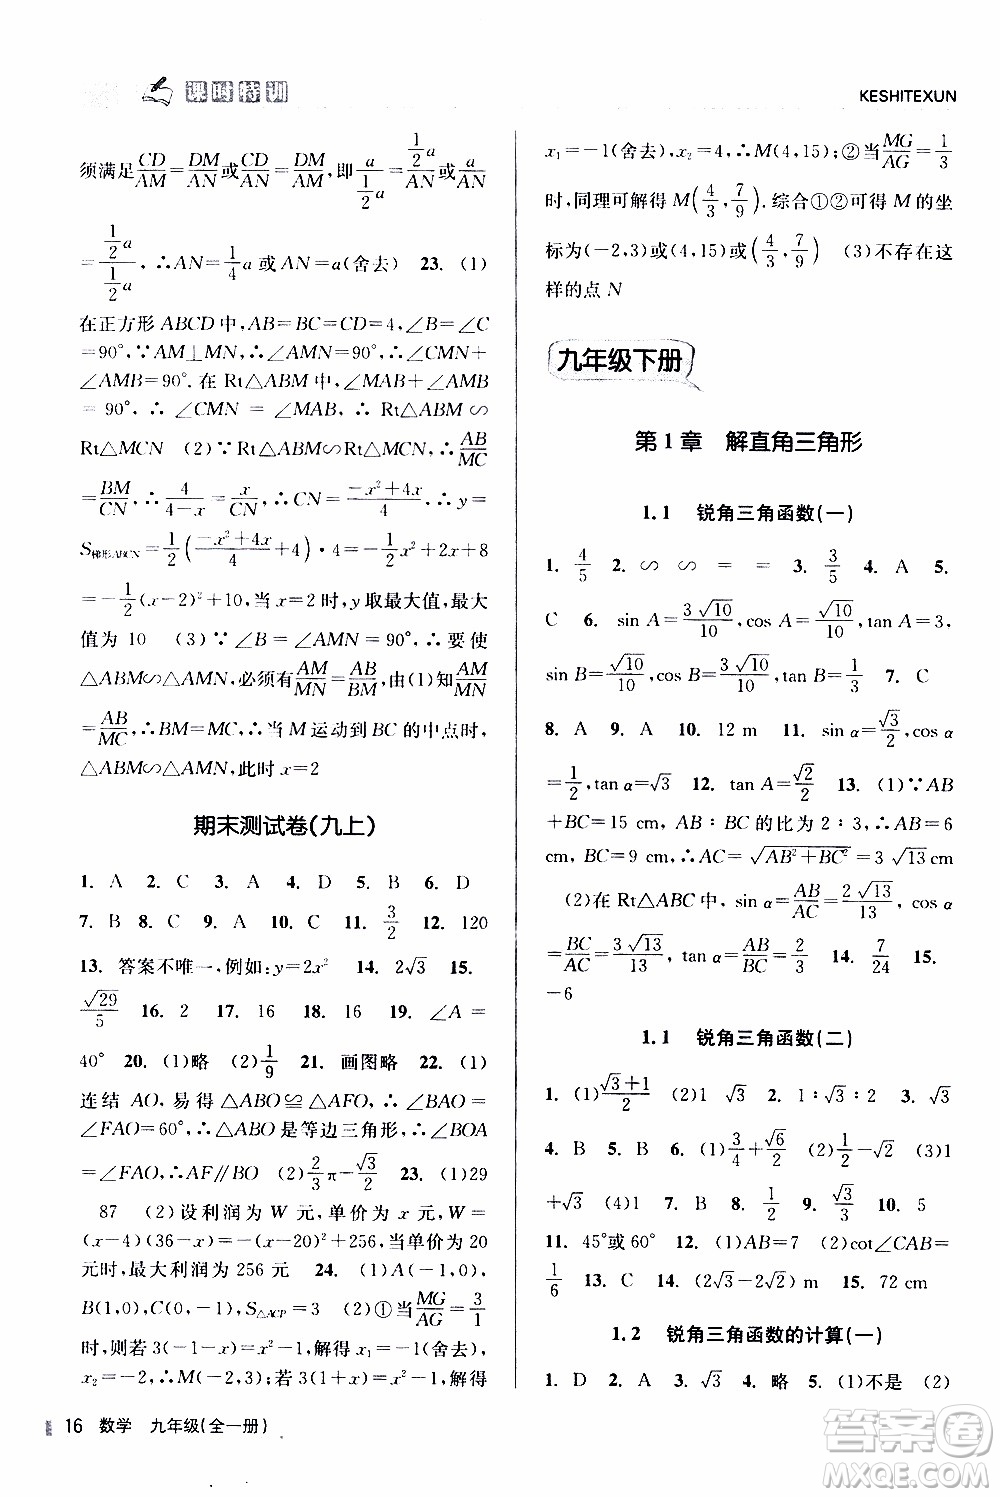 课时特训
KESHITEXUN
须满足CD/AM=DM/AN或CD/AN=DM/AM,即a/(1/2 a)=(1/2 a)/AN或a/AN
=(1/2 a)/(1/2 a),∴AN=1/4 a或AN=a(舍去) 23. (1)
在正方形ABCD中,AB=BC=CD=4,∠B=∠C
=90°,∵AM⊥MN,∴∠AMN=90°,∴∠CMN+
∠AMB=90°.在Rt△ABM中,∠MAB+∠AMB=
90°,∴∠CMN=∠MAB,∴Rt△ABM∽
Rt△MCN (2)∵Rt△ABM∽Rt△MCN,∴AB/MC
=BM/CN,∴4/(4-x)=x/CN,∴CN=(-x²+4x)/4,∴y=
S梯形ABCN=1/2((-x²+4x)/4+4)·4=-1/2x²+2x+8
=-1/2(x-2)²+10,当x=2时,y取最大值,最大
值为10 (3)∵∠B=∠AMN=90°,∴要使
△ABM∽△AMN,必须有AM/MN=AB/BM,由(1)知AM/MN
=AB/MC,∴BM=MC,∴当M运动到BC的中点时,
△ABM∽△AMN,此时x=2
期末测试卷(九上)
1. A 2. C 3. A 4. D 5. B 6. D
7. B 8. C 9. A 10. C 11. 3/2 12. 120
13. 答案不唯一,例如:y=2x² 14. 2√3 15.
√29/5 16. 2 17. 16 18. 16 19. ∠A=
40° 20. (1)略 (2)1/9 21. 画图略 22. (1)
连结AO,易得△ABO≌△AFO,∴∠BAO=
∠FAO=60°,∴△ABO是等边三角形,∴∠BOA
=∠FAO,∴AF∥BO (2)2/3π-√3/2 23. (1)29
87 (2)设利润为W元,单价为x元,W=
(x-4)(36-x)=-(x-20)²+256,当单价为20
元时,最大利润为256元 24. (1)A(-1,0),
B(1,0),C(0,-1),S△ACP=3 (2)①当MG/AG=3/1
时,则有3(-1-x)=x²-1,解得x₁=-1(舍去),
x₂=-2,∴M(-2,3);若3(x+1)=x²-1,解得
x₁=-1(舍去),x₂=4,∴M(4,15);②当MG/AG=1/3
时,同理可解得M(4/3,7/9).综合①②可得M的坐
标为(-2,3)或(4,15)或(4/3,7/9) (3)不存在这
样的点N
九年级下册
第1章 解直角三角形
1.1 锐角三角函数(一)
1. 4/5 2. ∽ ∽ = = 3. 3/5 4. A 5.
C 6. sin A=3√10/10,cos A=√10/10,tan A=3,
sin B=√10/10,cos B=3√10/10,tan B=1/3 7. C
8. A 9. A 10. 12 m 11. sin α=√3/2,cos α
=1/2,tan α=√3 12. tan A=√2/2 13. (1)∵AB
+BC=15 cm,AB∶BC的比为2∶3,∴AB=6
cm,BC=9 cm,∴AC=√(AB²+BC²)=3√13 cm
(2)在Rt△ABC中,sin α=AB/AC=2√13/13,cos α
=BC/AC=3√13/13,tan α=AB/BC=2/3 14. 7/24 15.
-6
1.1 锐角三角函数(二)
1. (1)(√3+1)/2 (2)√3 2. 1∶√3∶2 3. √3
4. B 5. B 6. (1)3/4+√6/2 (2)1/2 (3)2
+√3 (4)1 7. B 8. 1/2 9. √3/3 10. 5
11. 45°或60° 12. (1)AB=7 (2)cot∠CAB=
1/6 13. C 14. (2√3-2√2) m 15. 72 cm
1.2 锐角三角函数的计算(一)
1. D 2. A 3. √3 4. √3 5. (1)不是 (2)
16 数学 九年级(全一册)
答案圈
MXQE.COM